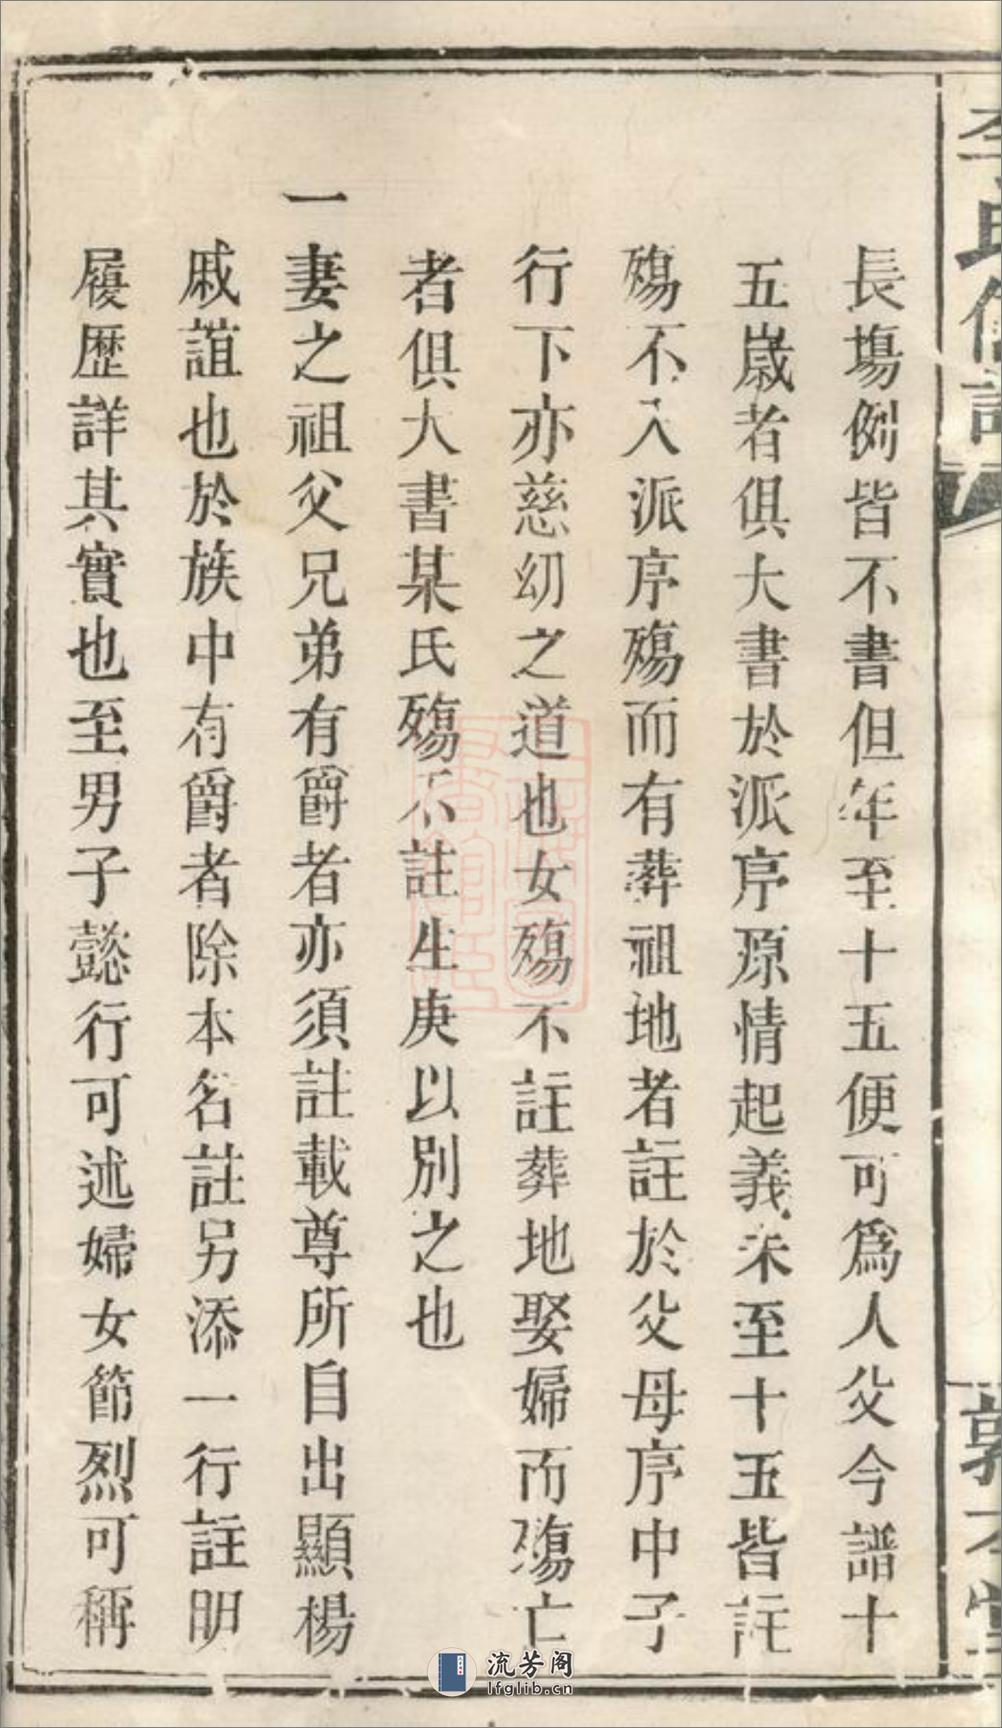 長塲例皆不書但年至十五便可爲人父今譜十
五歲者俱大書於派序原情起義未至十五皆註
殤不入派序殤而有葬祖地者註於父母序中子
行下亦慈幼之道也女殤不註葬地娶婦而殤亡
者俱大書某氏殤不註生庚以別之也
一妻之祖父兄弟有爵者亦須註載尊所自出顯楊
戚誼也於族中有爵者除本名註另添一行註明
履歷詳其實也至男子懿行可述婦女節烈可稱
流芳阁
lfglib.cn